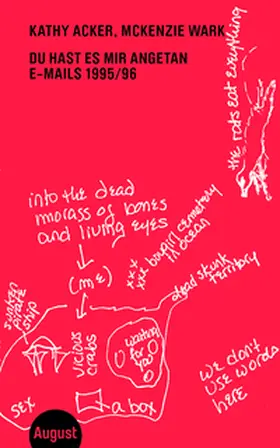 KATHY ACKER, MCKENZIE WARK
DU HAST ES MIR ANGETAN
E-MAILS 1995/96
the rats eat everything
into the dead
morass of bones
and living eyes
(me)
xxx
xxx
buglirl cemetery
in ocean
dead skunk
territory
sunken
pirate
ship
vicious
crabs
waiting
for
you
we don't
use words
here
sex
a box
August